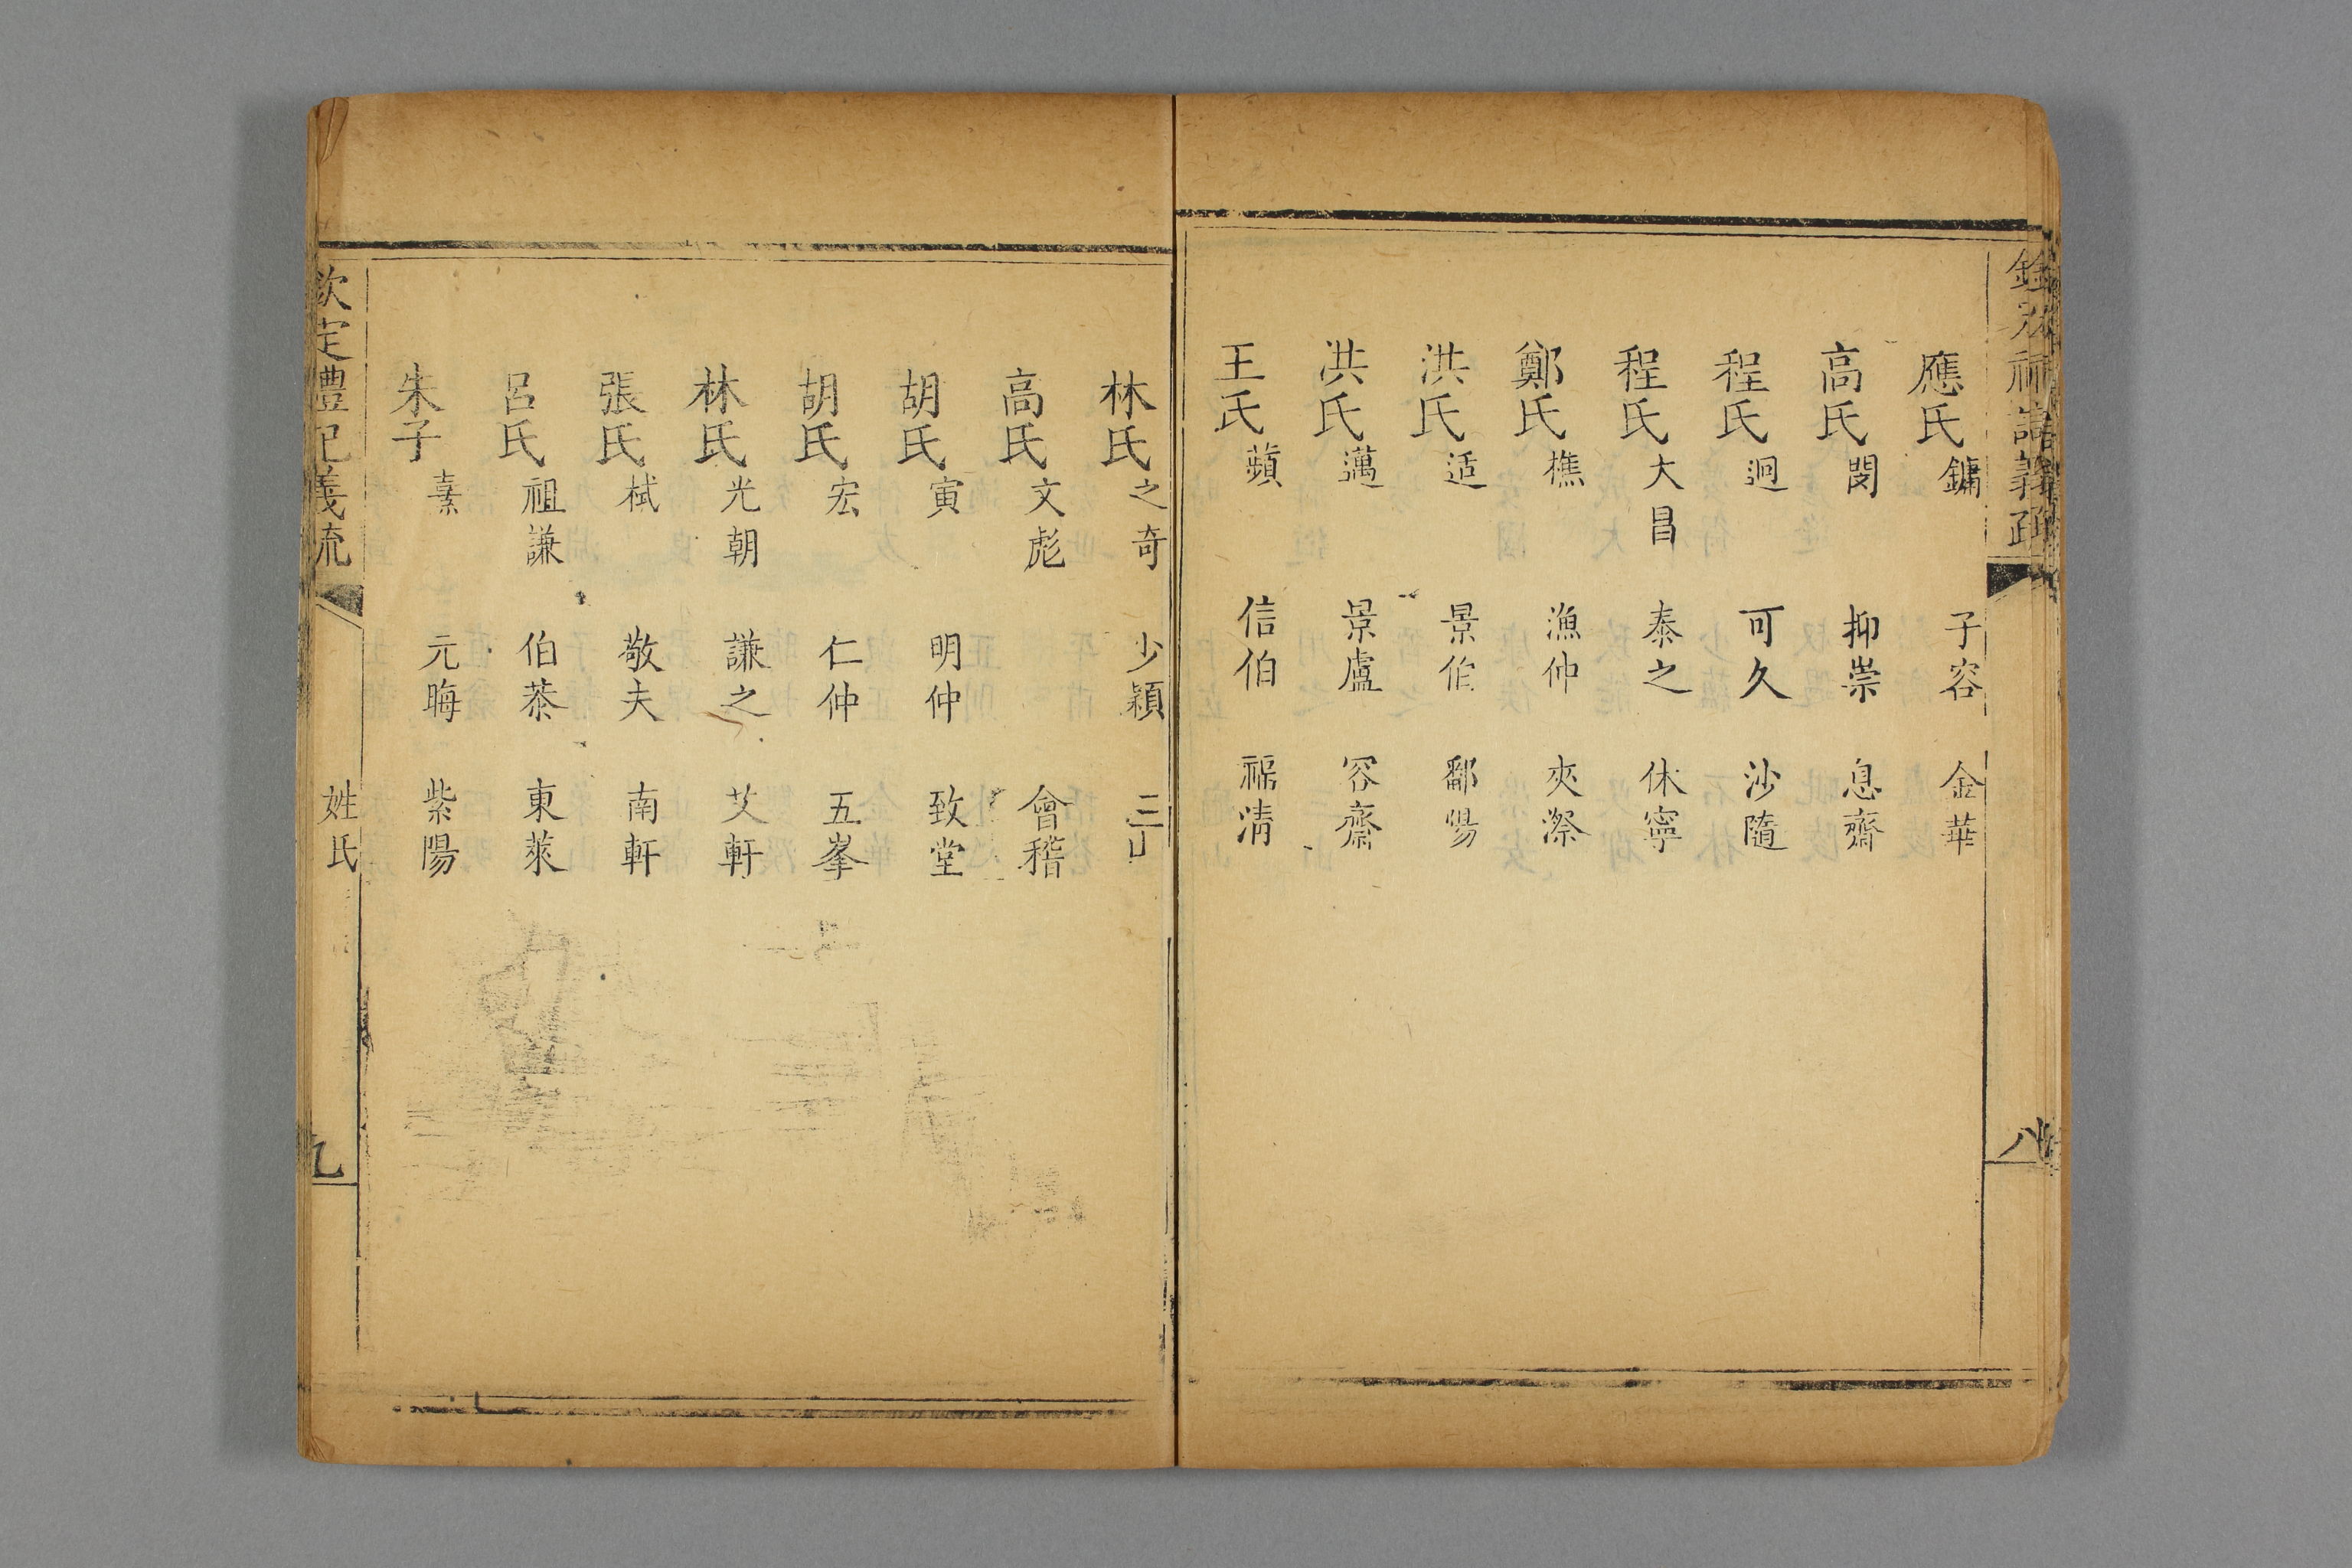 應氏鏞 子容 金華
高氏閌 抑崇 息齋
程氏迥 可久 沙隨
程氏大昌 泰之 休寧
鄭氏樵 漁仲 夾漈
洪氏适 景伯 鄱陽
洪氏邁 景盧 容齋
王氏蘋 信伯 福清
八
林氏之奇 少穎 三山
高氏文彪 會稽
胡氏寅 明仲 致堂
胡氏宏 仁仲 五峯
林氏光朝 謙之 艾軒
張氏栻 敬夫 南軒
呂氏祖謙 伯恭 東萊
朱子熹 元晦 紫陽
欽定禮記義疏 姓氏 九